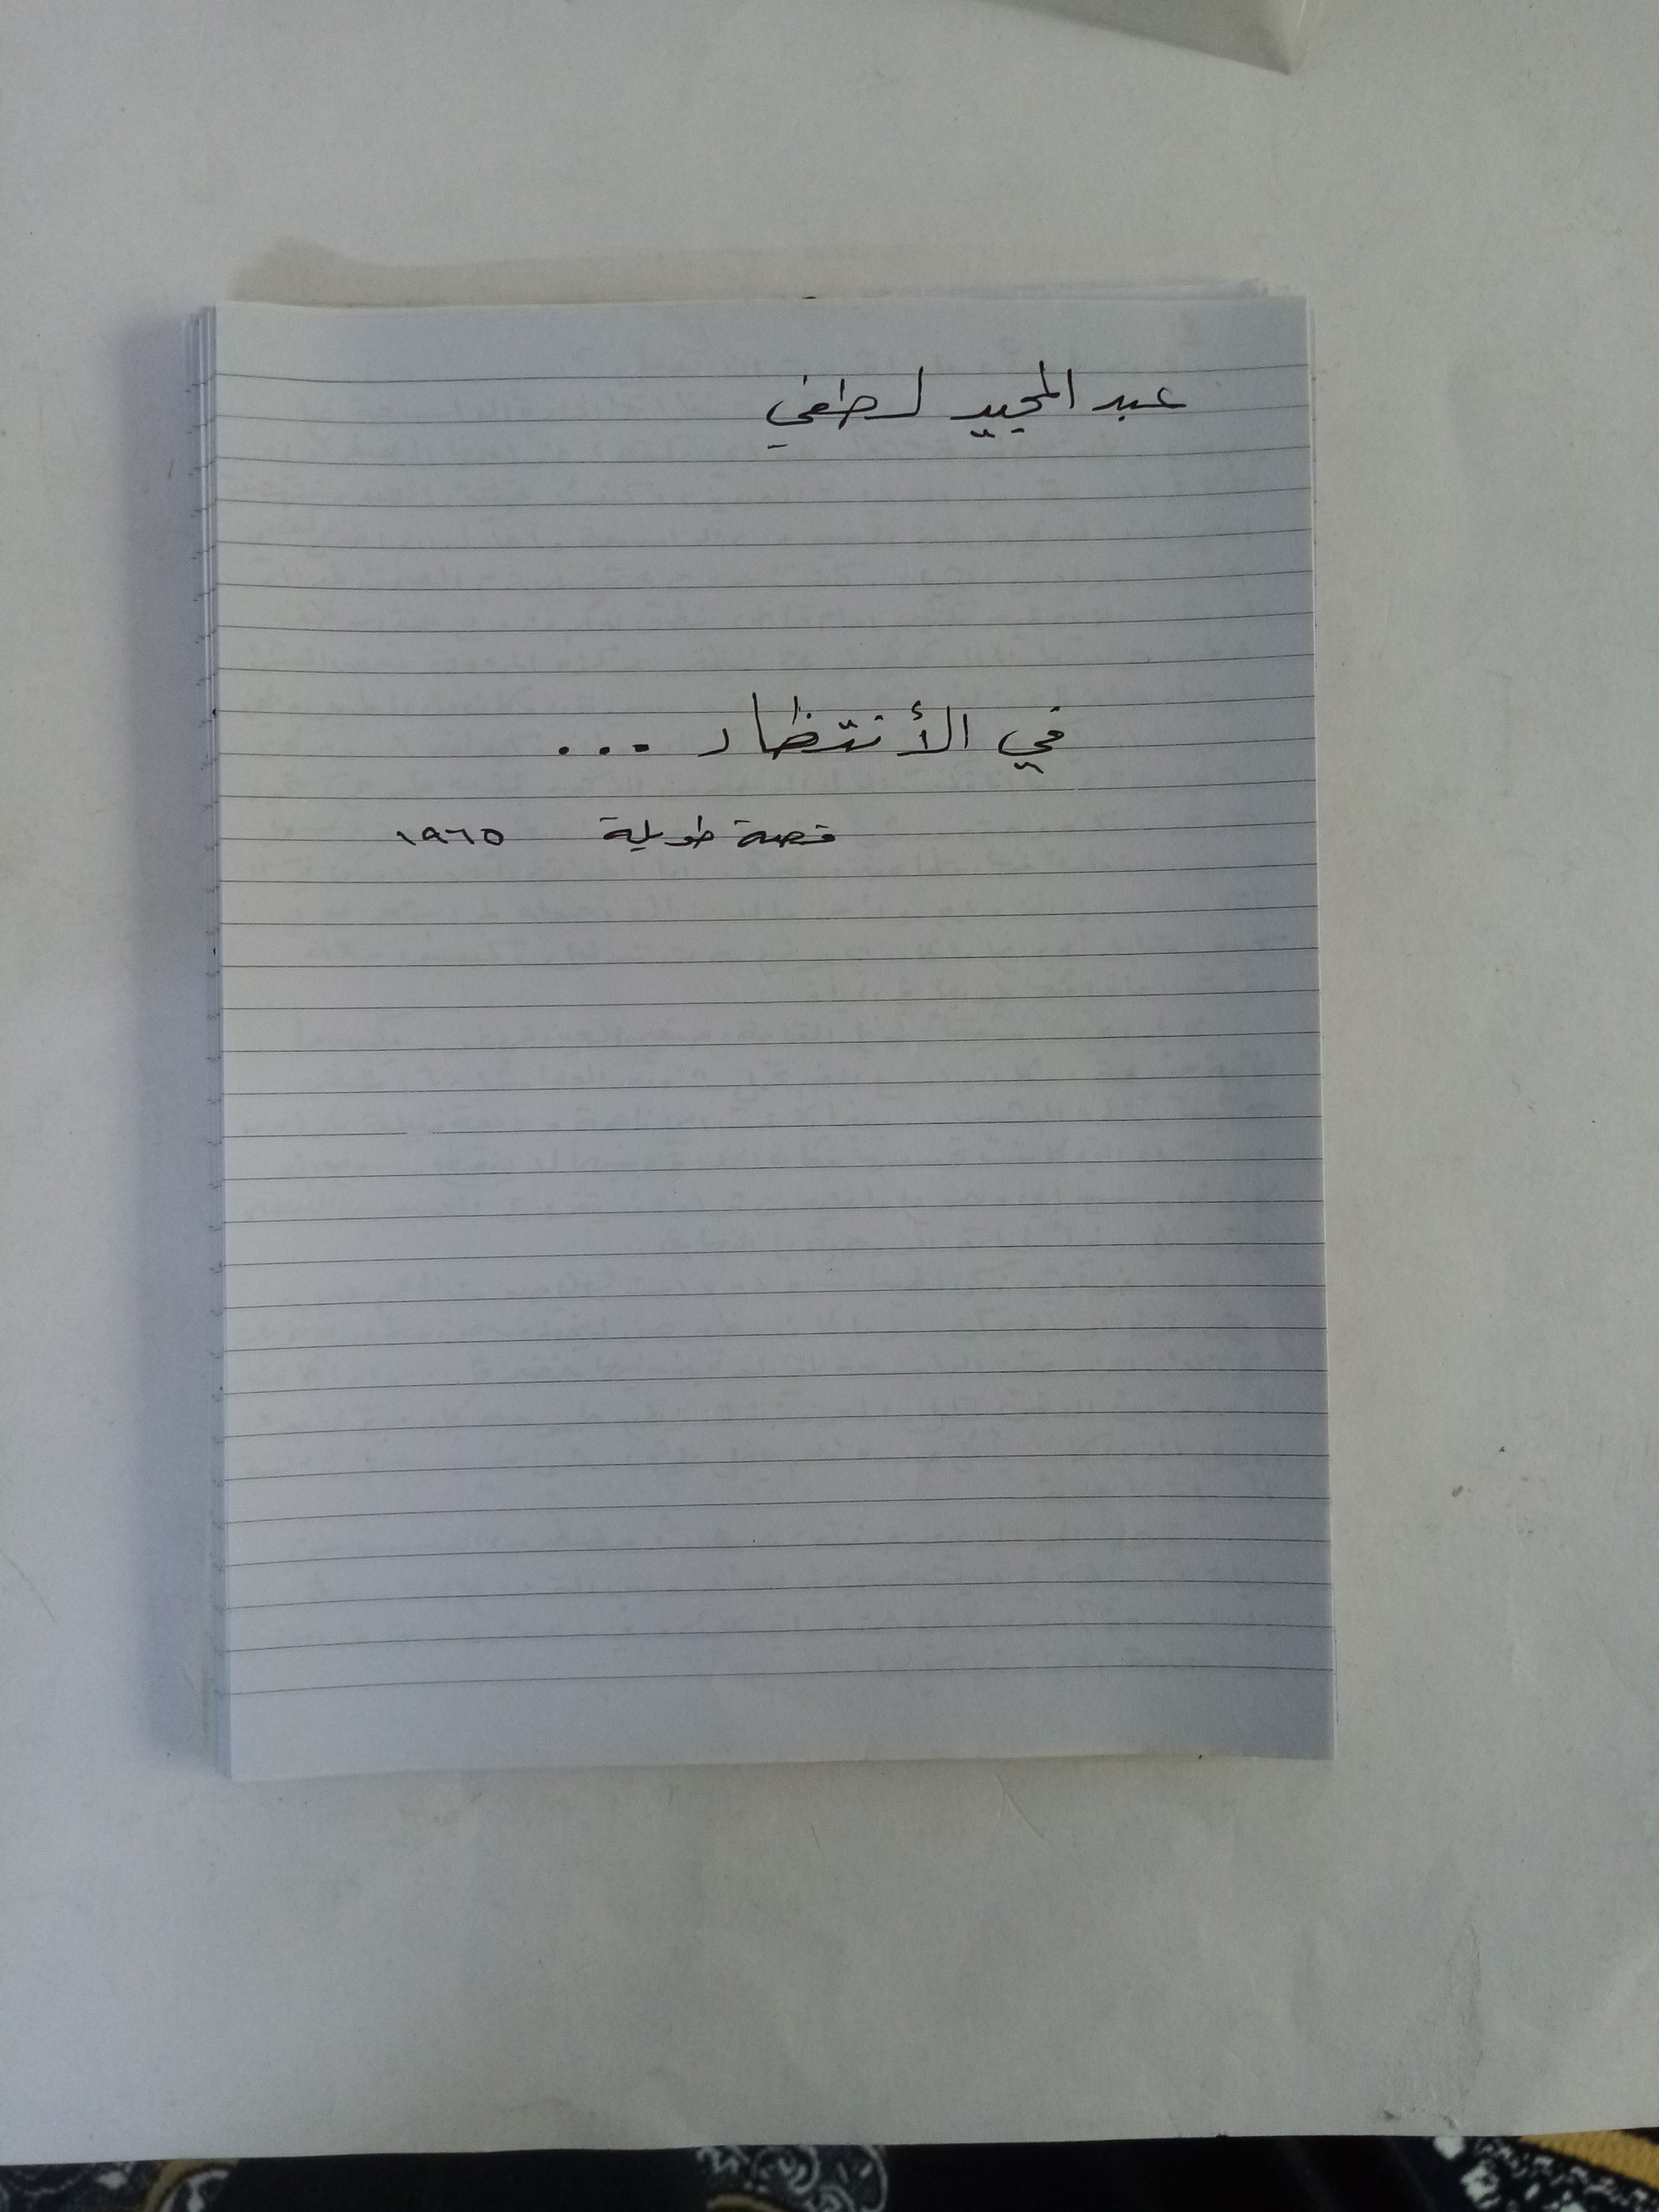 عبد المجيد لطفي
في الأنتظار ...
قصة طويلة ١٩٦٥